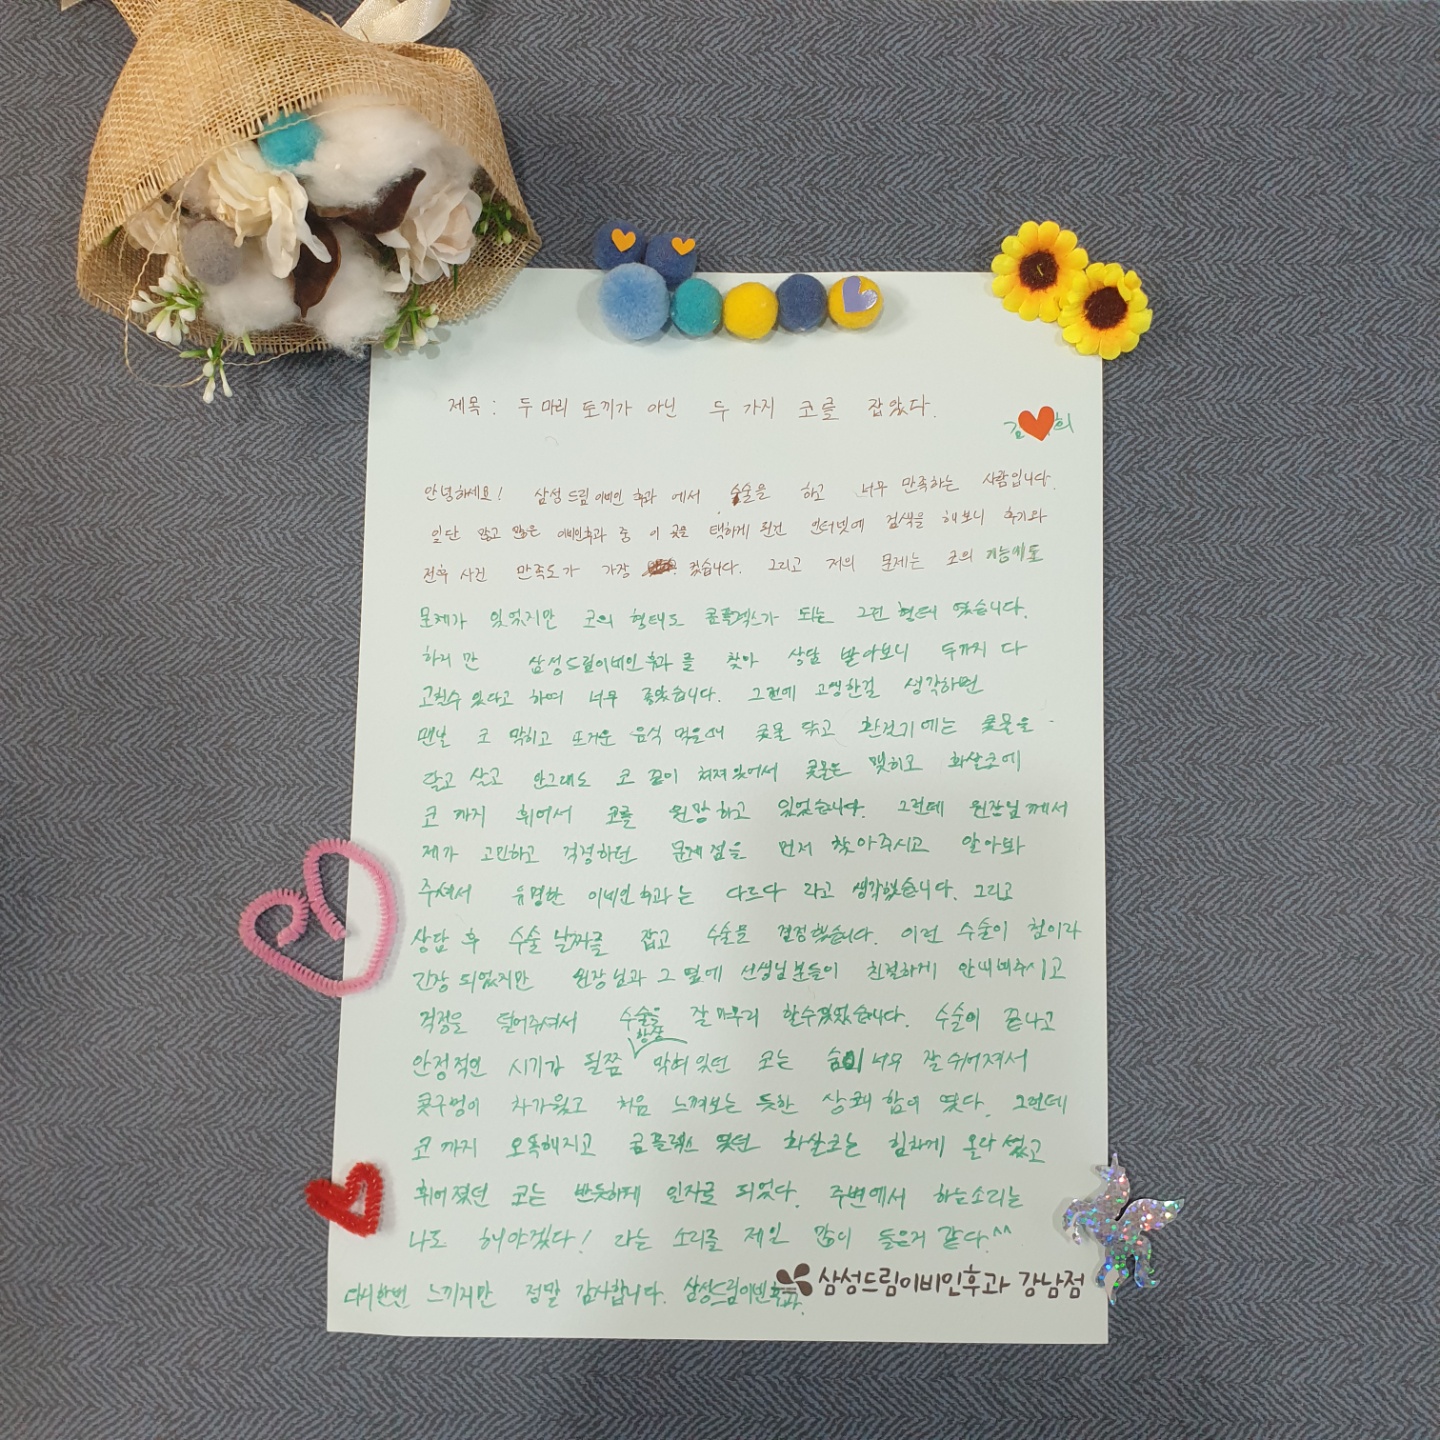 제목 : 두 마리 토끼가 아닌 두 가지 코를 잡았다.
김 희
안녕하세요! 삼성드림이비인후과에서 수술을 하고 너무 만족하는 사람입니다.
일단 많고 많은 이비인후과 중 이 곳을 택하게 된건 인터넷에 검색을 해보니 후기와
전후 사진 만족도가 가장 컸습니다. 그리고 저의 문제는 코의 기능에도
문제가 있었지만 코의 형태도 콤플렉스가 되는 그런 형태 였습니다.
하지만 삼성드림이비인후과를 찾아 상담 받아보니 두가지 다
고칠수 있다고 하여 너무 좋았습니다. 그런데 고생한걸 생각하면
맨날 코 막히고 뜨거운 음식 먹을때 콧물 닦고 환절기에는 콧물을
달고 살고 안그래도 코 끝이 쳐져있어서 콧물은 맺히고 화살코에
코 까지 휘어서 코를 원망하고 있었습니다. 그런데 원장님께서
제가 고민하고 걱정하던 문제점을 먼저 찾아주시고 알아봐
주셔서 유명한 이비인후과는 다르다 라고 생각했습니다. 그리고
상담 후 수술 날짜를 잡고 수술을 결정했습니다. 이런 수술이 첨이라
긴장 되었지만 원장님과 그 옆에 선생님분들이 친절하게 안내해주시고
걱정을 덜어주셔서 수술을 잘 마무리 할수있었습니다. 수술이 끝나고
안정적인 시기가 될쯤 항상 막혀있던 코는 숨이 너무 잘 쉬어져서
콧구멍이 차가웠고 처음 느껴보는 듯한 상쾌함이 였다. 그런데
코 까지 오똑해지고 콤플렉스 였던 화살코는 힘차게 올라섰고
휘어졌던 코는 반듯하게 일자로 되었다. 주변에서 하는소리는
나도 해야겠다! 라는 소리를 제일 많이 들은거 같다.^^
다시한번 느끼지만 정말 감사합니다. 삼성드림이비인후과.
삼성드림이비인후과 강남점